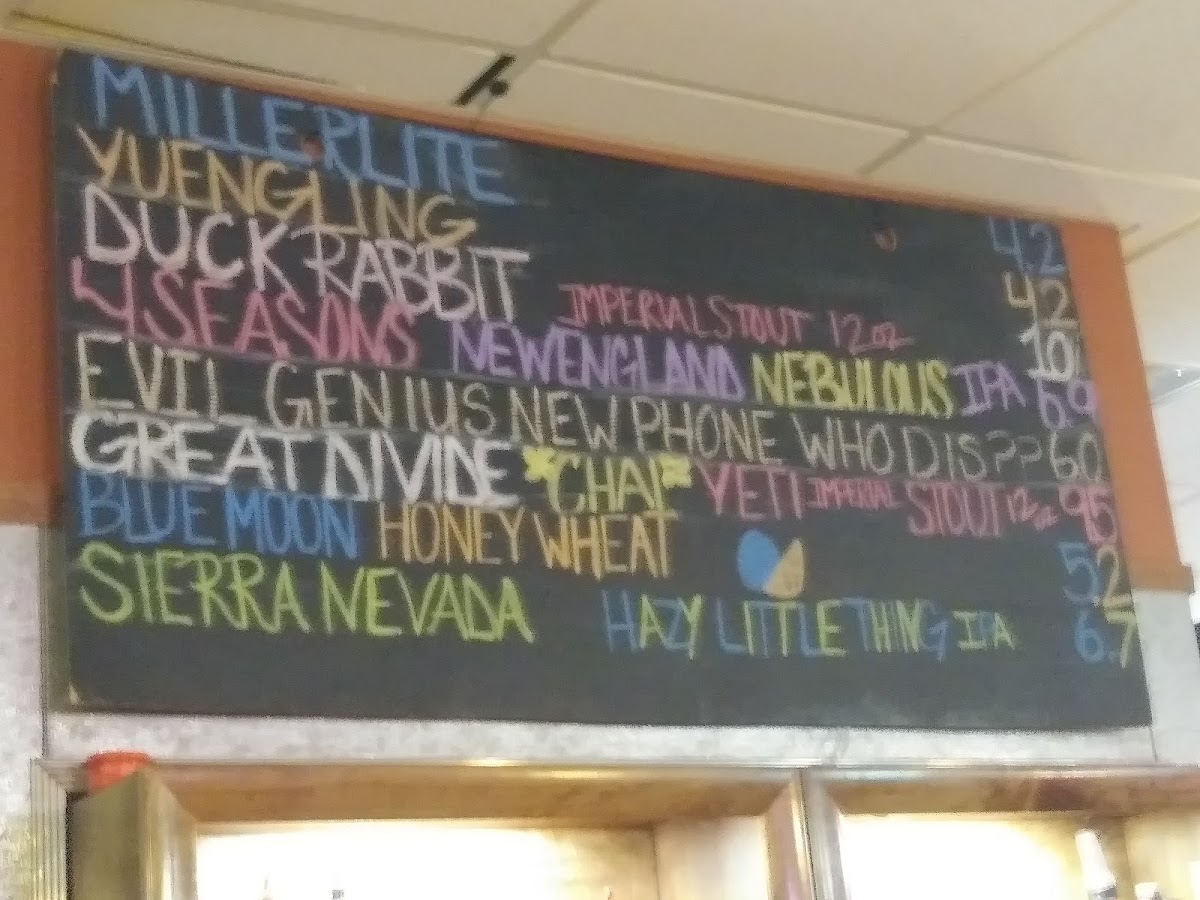 MILLER LITE 4.2
YUENGLING 4.2
DUCK RABBIT IMPERIAL STOUT 12oz 10
4 SEASONS NEW ENGLAND NEBULOUS IPA 6.9
EVIL GENIUS NEW PHONE WHO DIS?? 6.0
GREAT DIVIDE *CHAI* YETI IMPERIAL STOUT 12oz 9.5
BLUE MOON HONEY WHEAT 5.2
SIERRA NEVADA HAZY LITTLE THING IPA 6.7